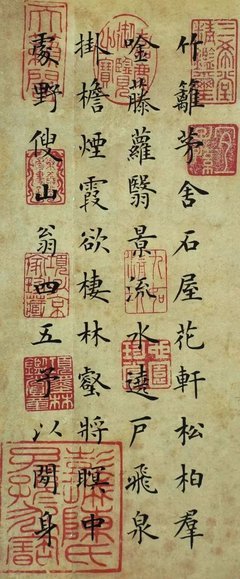 竹籬茅舍石屋花軒松柏羣
唫藤蘿翳景流水遶戶飛泉
掛檐煙霞欲棲林壑將瞑中
處野傁山翁四五予以閒身